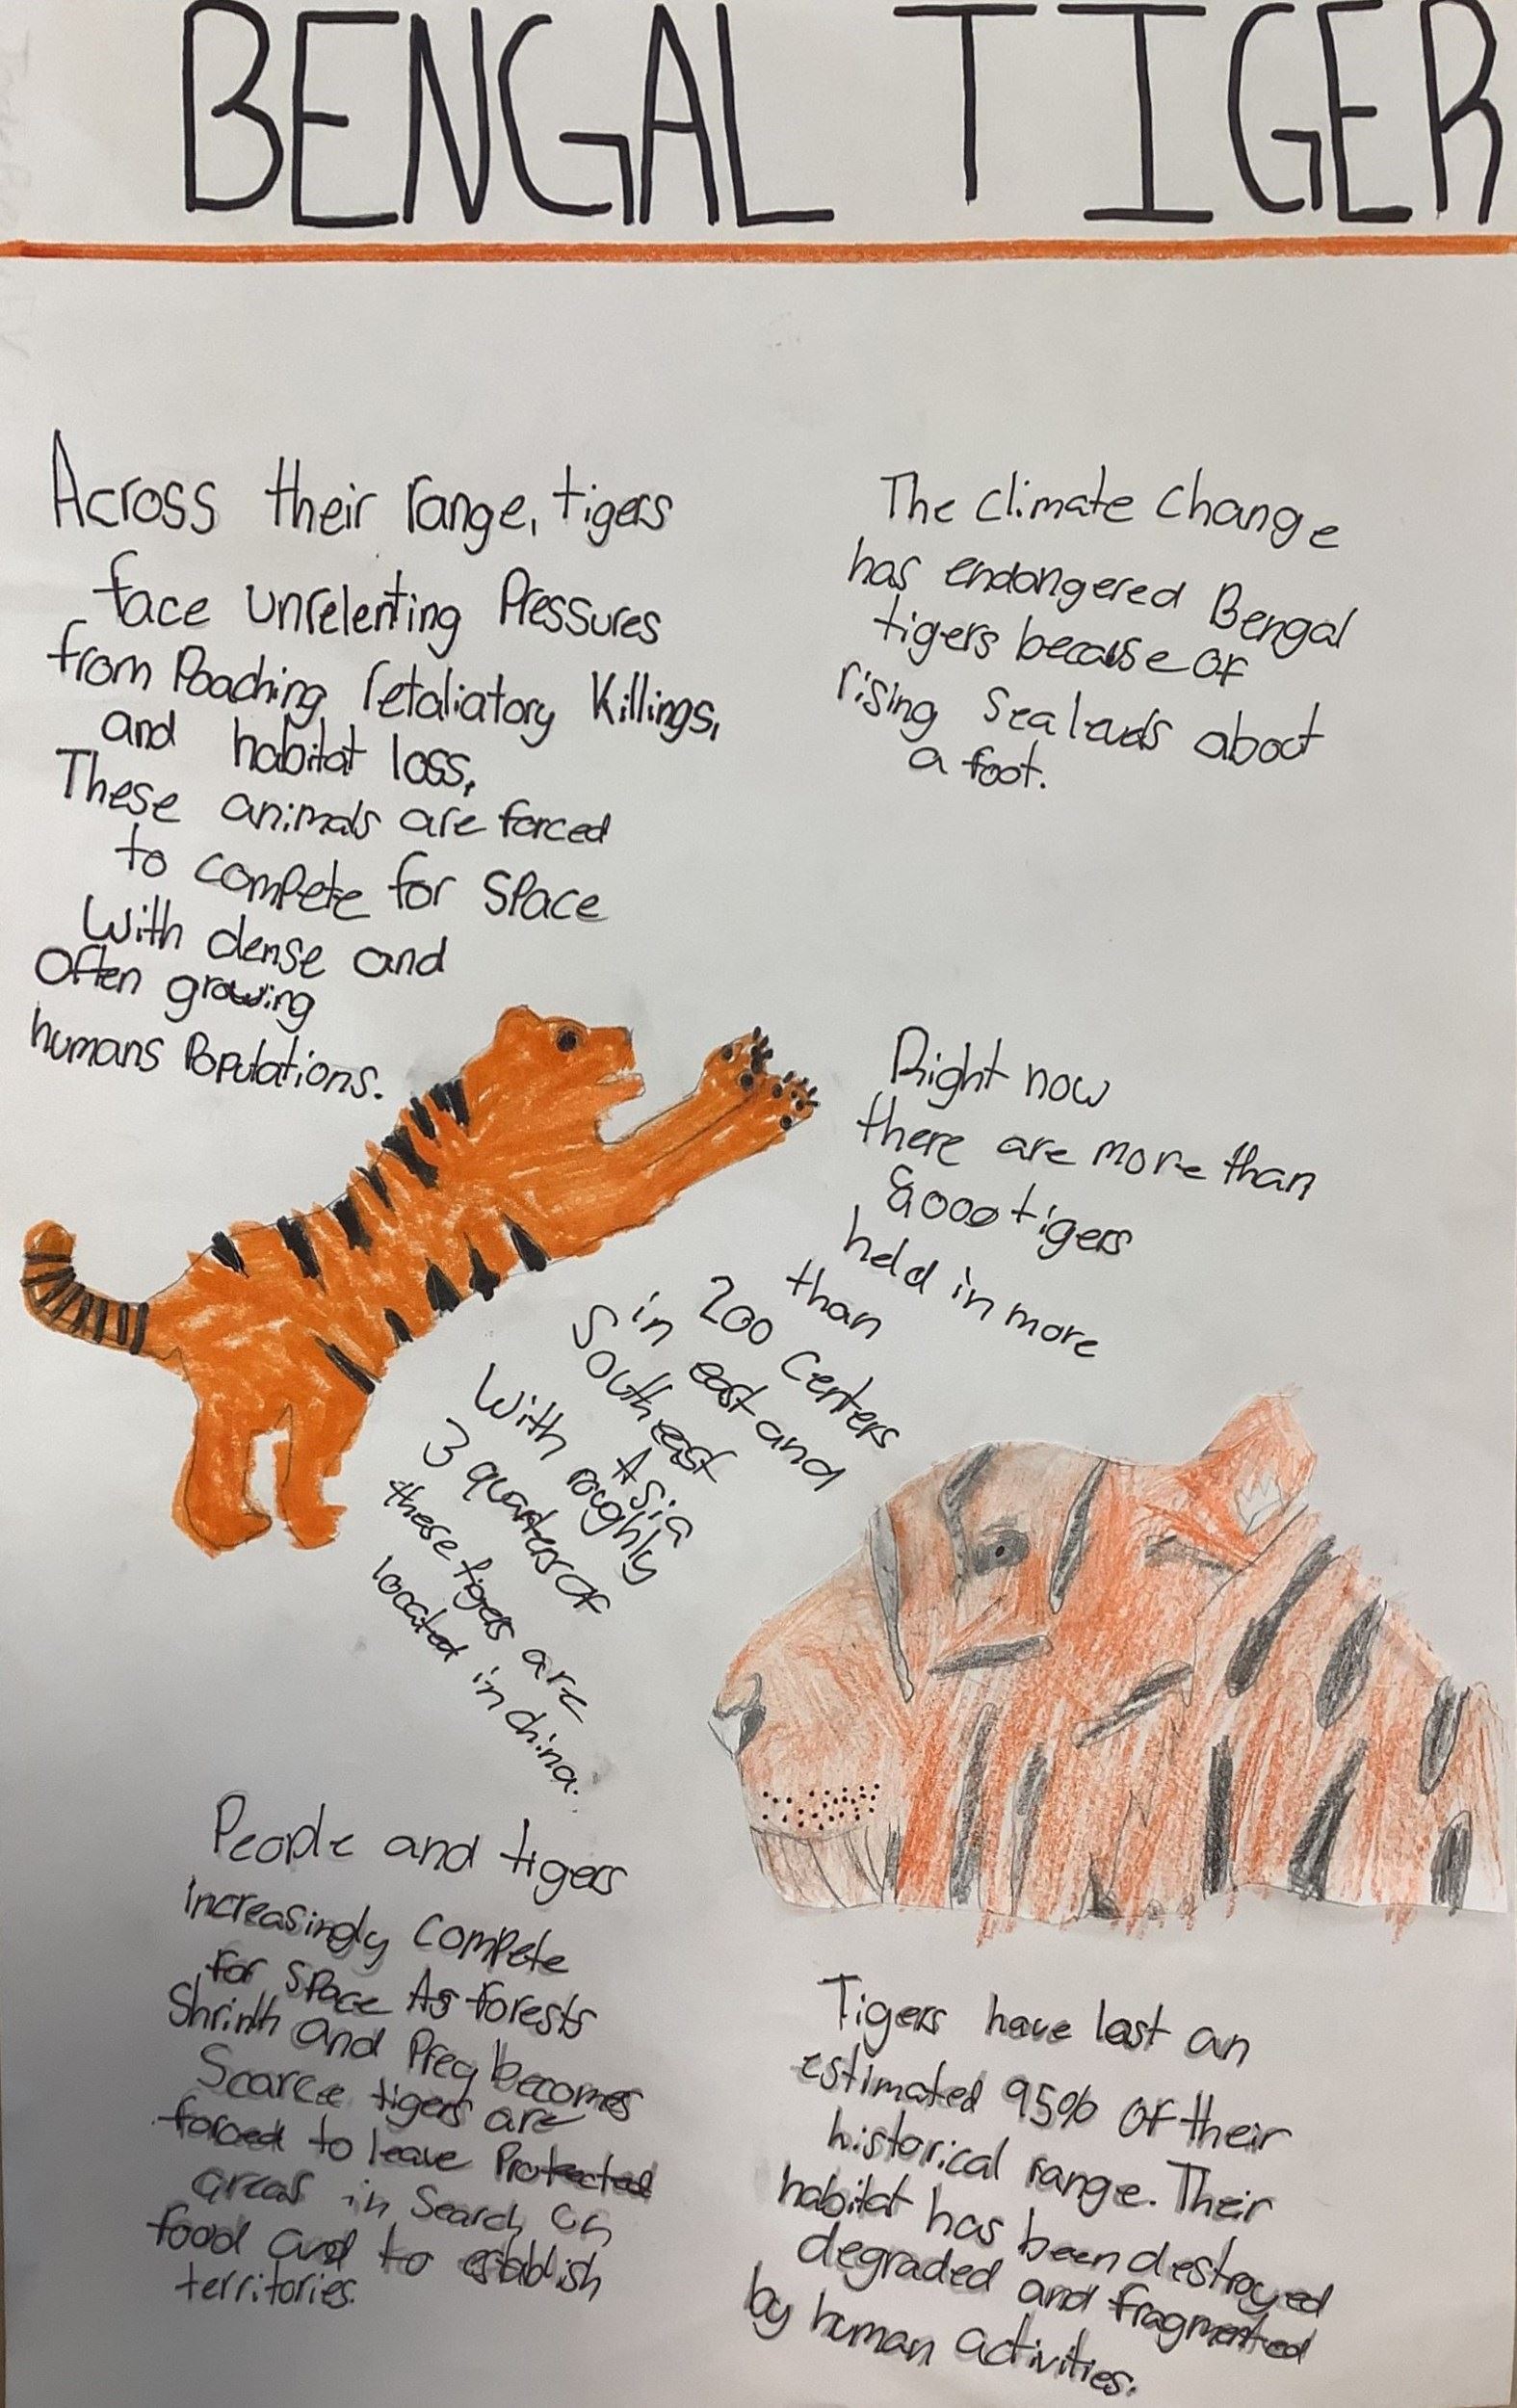 BENGAL TIGER
Across their range, tigers
face unrelenting Pressures
from Poaching retaliatory Killings,
and habitat loss,
These animals are forced
to compete for space
With dense and
Often growing
humans Populations.
The climate change
has endangered Bengal
tigers because of
rising sea levels about
a foot.
Right now
there are more than
8000 tigers
held in more
than
200 centers
in east and
South east
Asia
With roughly
3 quarters of
these tigers are
located in china.
People and tigers
increasingly compete
for space As forests
Shrink and Prey becomes
Scarce tigers are
forced to leave Protected
areas in Search on
food and to establish
territories.
Tigers have lost an
estimated 95% of their
historical range. Their
habitat has been destroyed
degraded and fragmented
by human activities.